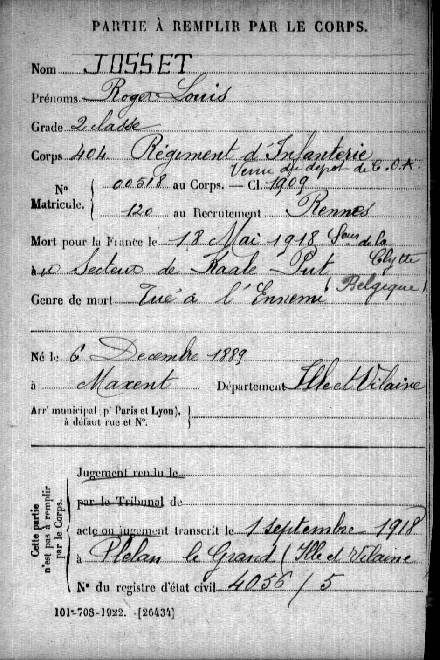 PARTIE À REMPLIR PAR LE CORPS.
Nom JOSSET
Prénoms Roger Louis
Grade 2 classe
Corps 404 Régiment d'Infanterie
Venu du dépot de
Nº 00518 au Corps. — Cl. 1909
Matricule. 120 au Recrutement Rennes
Mort pour la France le 18 Mai 1918
à Secteur de Kaale Put Clytte
Genre de mort Tué à l'Ennemi (Belgique)
Né le 6 Decembre 1889
à Maxent Département Ille et Vilaine
Arrt municipal (pr Paris et Lyon),
à défaut rue et Nº.
Cette partie
n'est pas à remplir
par le Corps.
Jugement rendu le
par le Tribunal de
acte ou jugement transcrit le 1 septembre 1918
à Plelan le Grand (Ille et Vilaine
Nº du registre d'état civil 4056/5
101-708-1922. [26434]